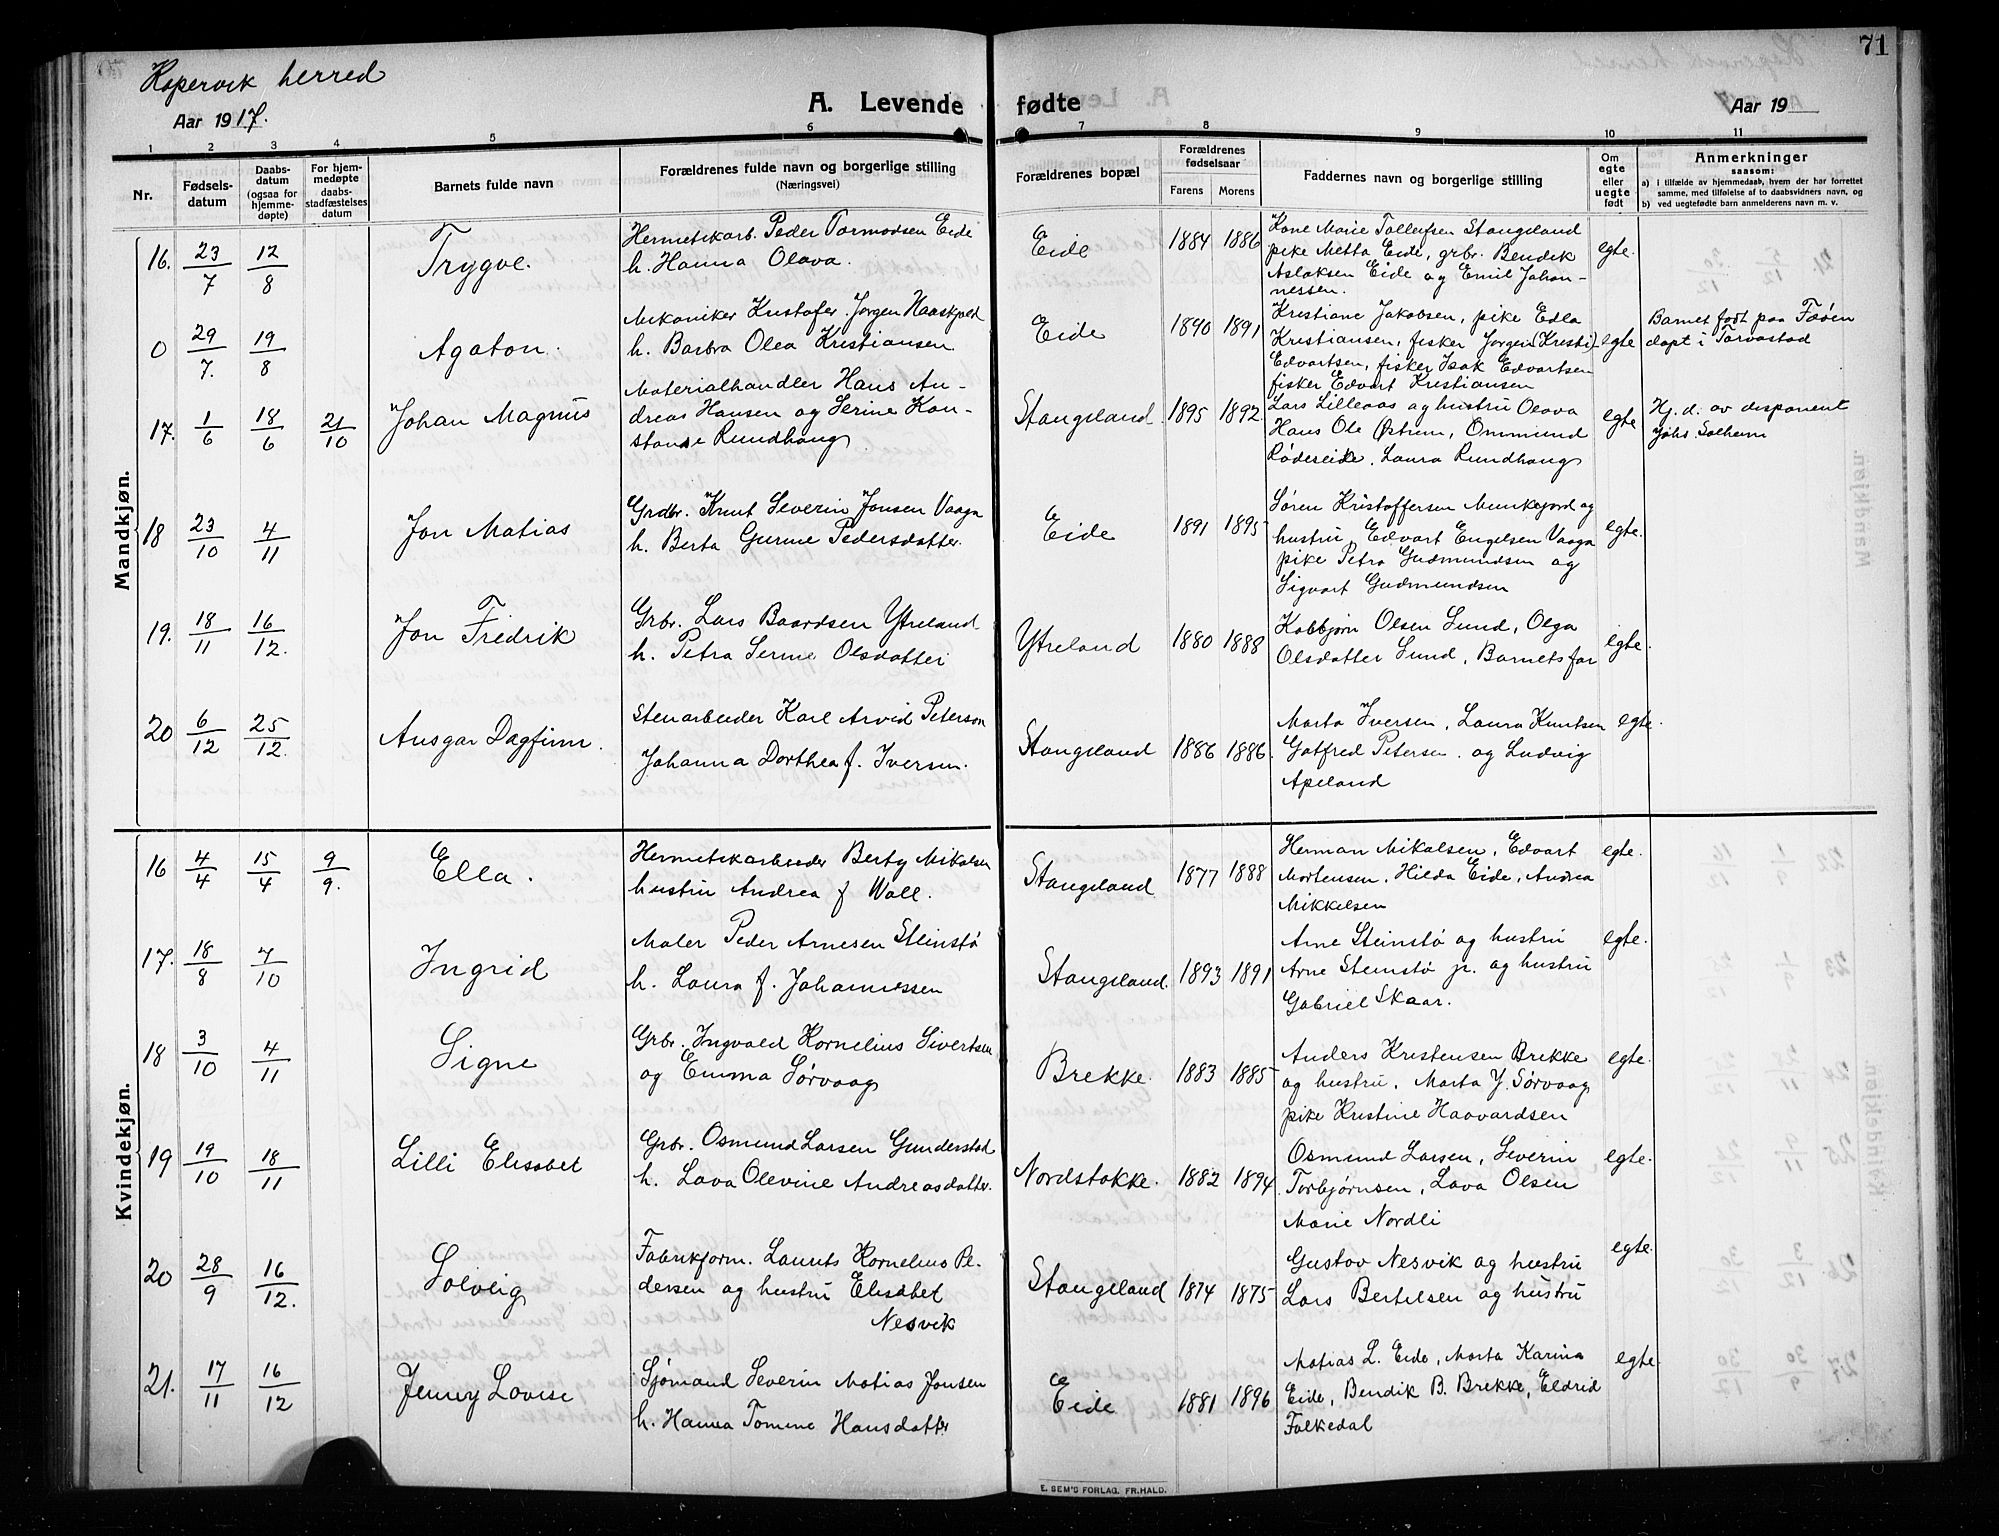 71
Kopervik herred
A. Levende fødte
Aar 1917.
Aar 19
1 2 3 4 5 6 7 8 9 10 11
Nr.
Fødsels-
datum
Daabs-
datum
(ogsaa for
hjemme-
døpte)
For hjem-
medøpte
daabs-
stadfæstelses
datum
Barnets fulde navn
Forældrenes fulde navn og borgerlige stilling
(Næringsvei)
Forældrenes bopæl
Forældrenes
fødselsaar
Farens Morens
Faddernes navn og borgerlige stilling
Om
egte
eller
uegte
født
Anmerkninger
saasom:
a) I tilfælde av hjemmedaab, hvem der har forrettet
samme, med tilføielse af to daabsvidners navn, og
b) ved uegtefødte barn anmelderens navn m. v.
Mandkjøn.
16. 23/7 12/8 Trygve.
Hermetikarb. Peder Tormodsen Eide
h. Hanna Olava.
Eide 1884 1886
Kone Marie Tollefsen Stangeland
pike Metta Eide, grbr. Bendik
Aslaksen Eide og Emil Johan-
nessen.
egte.
0 29/7. 19/8 Agaton.
Mekaniker Kristofer Jørgen Haaskjold
h. Barbra Olea Kristiansen
Eide 1890 1891
Kristiane Jakobsen, pike Edla
Kristiansen, fisker Jørgen (Kristi)
Edvartsen, fisker Isak Edvartsen
fisker Edvart Kristiansen
egte
Barnet født paa Føøen
døpt i Torvastad
17. 1/6 18/6 21/10 Johan Magnus
Materialhandler Hans An-
dreas Hansen og Serine Kon-
stanse Rundhaug
Stangeland 1895 1892
Lars Lilleaas og hustru Olava
Hans Ole Østrem, Ommund
Rødseide, Laura Rundhaug
egte
Hj. d. av disponent
Johs. Solheim
18 23/10 4/11 Jon Matias
Grdbr. Knut Severin Jonsen Vaaga
h. Berta Gurine Pedersdatter.
Eide 1891 1895
Søren Kristoffersen Munkejord og
hustru, Edvart Engelsen Vaaga
pike Petra Gudmundsen og
Sigvart Gudmundsen
egte.
19. 18/11 16/12. Jon Fredrik
Grbr. Lars Baardsen Ytreland
h. Petra Serine Olsdatter
Ytreland 1880 1888
Kobbjørn Olsen Sund, Olga
Olsdatter Sund, Barnets far
egte.
20 6/12 25/12. Ansgar Dagfinn.
Stenarbeider Karl Arvid Peterson
Johanna Dorthea f. Iversen.
Stangeland 1886 1886.
Marta Iversen, Laura Knutsen
Gotfred Petersen. og Ludvig
Apeland
egte.
Kvindekjøn.
16 4/4 15/4 9/9. Ella.
Hermetikarbeider Berty Mikalsen
hustru Andrea f Wall.
Stangeland 1877 1888
Herman Mikalsen, Edvart
Mortensen, Hilda Eide, Andrea
Mikkelsen
egte.
17. 18/8 7/10 Ingrid
Maler Peder Arnesen Steinstø
h. Laura f. Johannessen
Stangeland. 1893 1891
Arne Steinstø og hustru
Arne Steinstø jr. og hustru
Gabriel Skaar.
egte.
18 3/10 4/11 Signe
Grbr. Ingvald Kornelius Sivertsen
og Emma Sørvaag
Brekke. 1883 1885
Anders Kristensen Brekke
og hustru, Marta J. Sørvaag
pike Kristine Haavardsen
egte.
19 19/10 18/11 Lilli Elisabet
Grbr. Osmund Larsen Gunderstad
h. Lava Olevine Andreasdatter.
Nordstokke. 1882 1894
Osmund Larsen, Severin
Torbjørnsen, Lava Olsen
Marie Nordli
egte.
20 28/9 16/12. Solveig
Fabrikform. Laurits Kornelius Pe-
dersen og hustru Elisabet
Nesvik
Stangeland 1874 1875
Gustav Nesvik og hustru
Lars Bertelsen og hustru
egte.
21. 17/11 16/12 Jenny Lovise
Sjømand Severin Matias Jonsen
h. Hanna Tomine Hansdatter
Eide 1881 1896
Matias L. Eide, Marta Karina
Eide, Bendik B. Brekke, Eldrid
Falkedal
egte.
E. SEM'S FORLAG, FR.HALD.